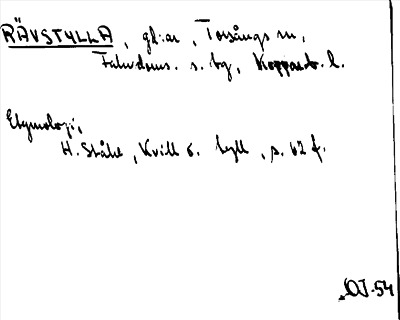 RÄVSTYLLA, gl:ar, Torsångs sn,
Falu doms. s. bg, Kopparb. l.
Etymologi,
H. Ståhl, Kvill o. tyll, s. 62 f.
OJ. 54